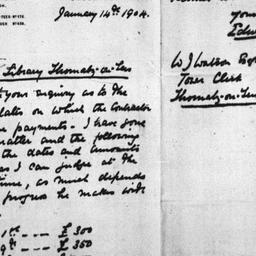 January 14th 1904.
Library Thornaby-on-Tees
your enquiry as to the
dates on which the Contractor
payments. I have gone
matter and the following
the dates and amounts
as I can judge at the
time, as much depends
progress he makes with
1st --- £ 300
9th --- £ 350
your
Edw
W J Watson
Town Clerk
Thornaby-on-Tees